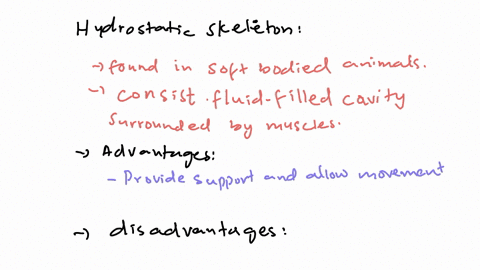 Hydrostatic skeleton:
→ found in soft bodied animals.
→ consist fluid-filled cavity
surrounded by muscles.
→ Advantages:
- Provide support and allow movement
→ disadvantages: